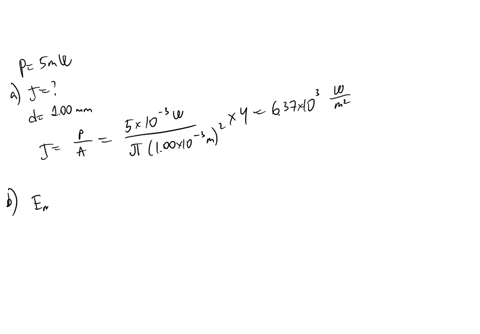 P= 5mW
a) J=?
d= 1.00 mm
J= P/A = 5×10⁻³ W / π (1.00×10⁻³ m)² × 4 = 6.37×10³ W/m²
b) Em